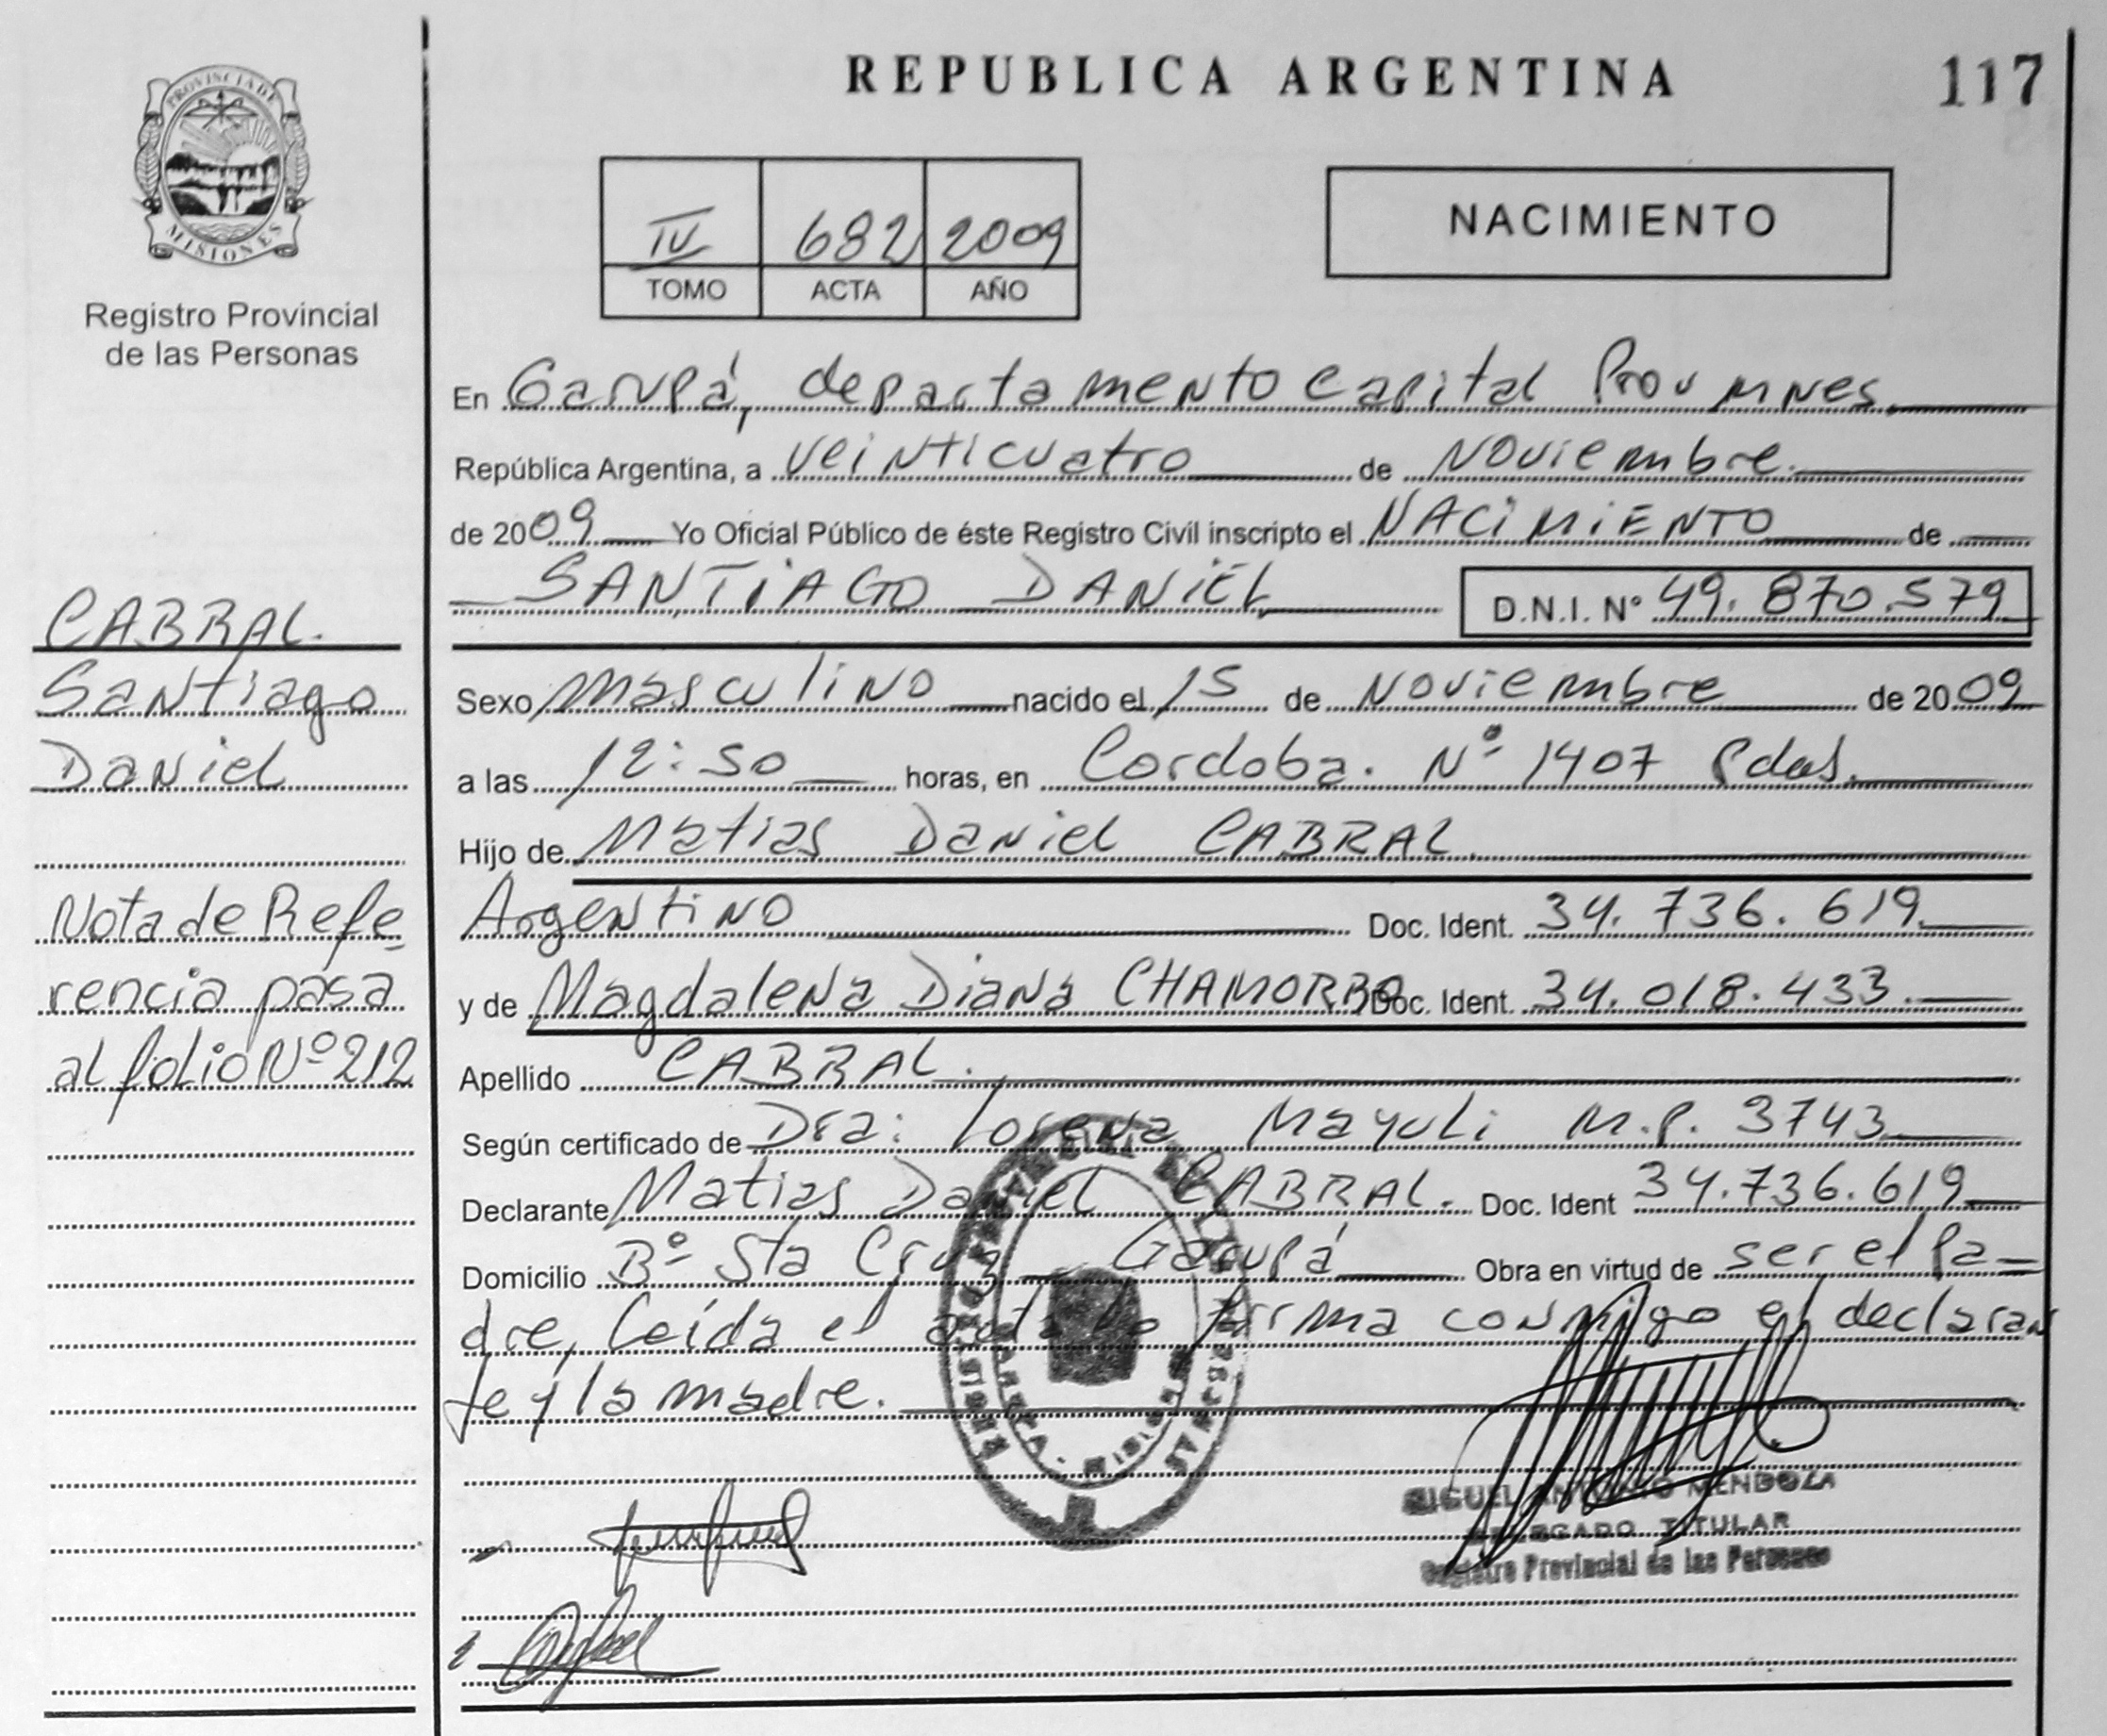 PROVINCIA DE
MISIONES
Registro Provincial
de las Personas
REPUBLICA ARGENTINA
117
IV 682 2009
TOMO ACTA AÑO
NACIMIENTO
En Garupá, departamento Capital Prov MNes.
República Argentina, a veinticuatro de Noviembre.
de 2009 Yo Oficial Público de éste Registro Civil inscripto el NACIMIENTO de
SANTIAGO DANIEL D.N.I. N° 49.870.579
CABRAL.
Santiago
Daniel
Sexo Masculino nacido el 15 de Noviembre de 2009
a las 12:50 horas, en Cordoba. Nº 1407 Pdas.
Hijo de Matias Daniel CABRAL
Argentino Doc. Ident. 34.736.619
y de Magdalena Diana CHAMORRO Doc. Ident. 34.018.433
Nota de Refe
rencia pasa
al folio Nº 212
Apellido CABRAL.
Según certificado de Dra: Lorena Mayuli M.P. 3743
Declarante Matias Daniel CABRAL. Doc. Ident 34.736.619
Domicilio Bº Sta Cruz Garupá Obra en virtud de ser el Pa-
dre, Leída el acta la firma conmigo el declaran
te y la madre.
MIGUEL ANTONIO MENDOZA
DELEGADO TITULAR
Registro Provincial de las Personas